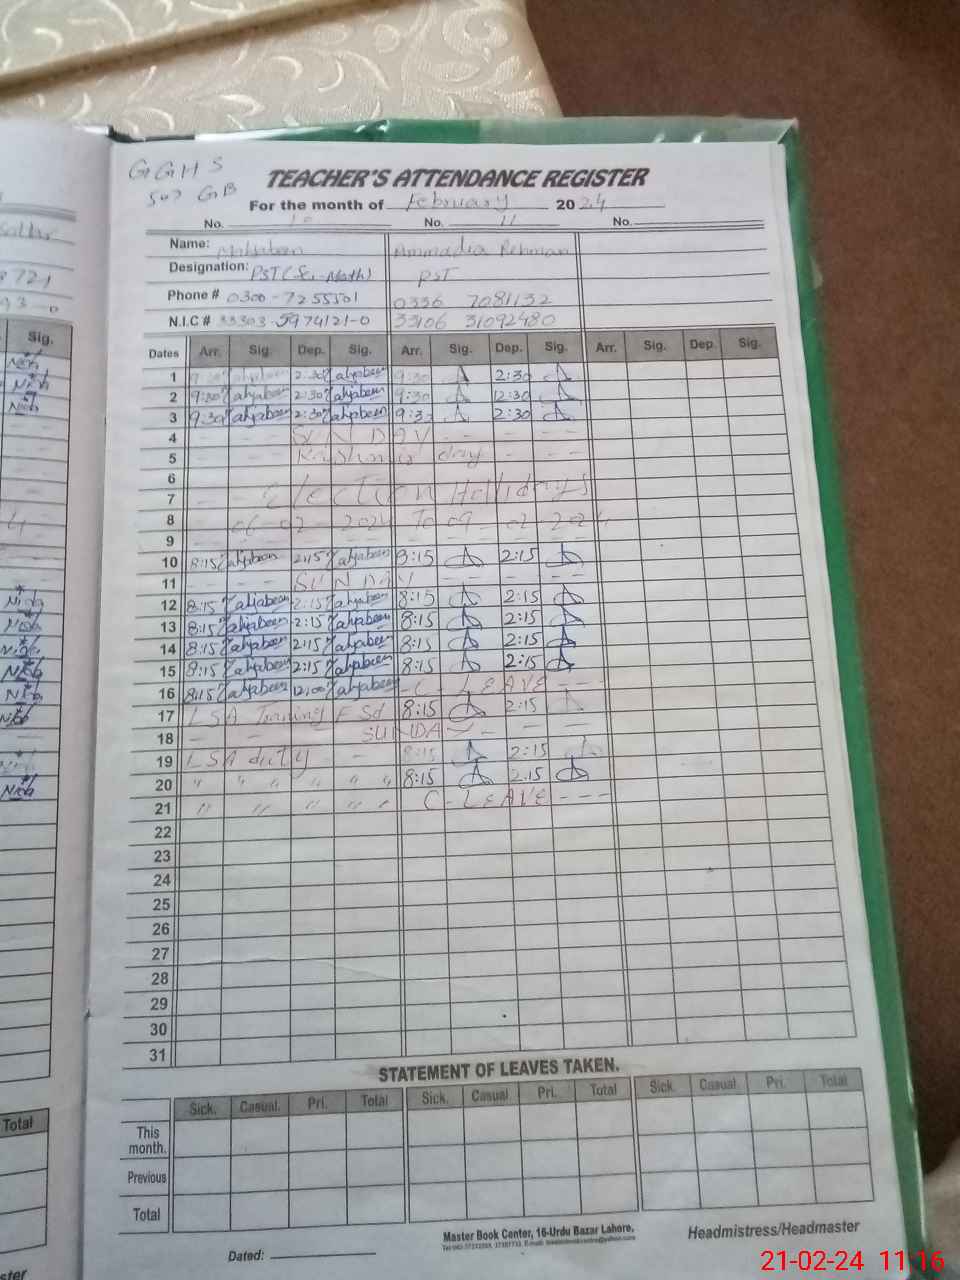 GGHS
507 GB
TEACHER'S ATTENDANCE REGISTER
For the month of February 2024
No. 10 No. 11 No.
Name: Ammadia Rehman
Designation: PST (Sci-Math) PST
Phone # 0300-7255501 0336 7081132
N.I.C # 33303-5974121-0 33106 31092480
Dates Arr. Sig. Dep. Sig. Arr. Sig. Dep. Sig. Arr. Sig. Dep. Sig.
1 9:30 2:30 9:30 2:30
2 9:30 2:30 9:30 12:30
3 9:30 2:30 9:30 2:30
4 SUNDAY
5 Kashmir day
6
7 Election Hollidays
8 06-02-2024 To 09-02-2024
9
10 8:15 2:15 8:15 2:15
11 SUNDAY
12 8:15 2:15 8:15 2:15
13 8:15 2:15 8:15 2:15
14 8:15 2:15 8:15 2:15
15 8:15 2:15 8:15 2:15
16 8:15 12:00 C-LEAVE
17 LSA Training FSd 8:15 2:15
18 SUNDAY
19 LSA duty 8:15 2:15
20 " " " " " " 8:15 2:15
21 " " " " " C-LEAVE
22
23
24
25
26
27
28
29
30
31
STATEMENT OF LEAVES TAKEN.
Sick. Casual. Pri. Total Sick. Casual Pri. Total Sick. Casual. Pri. Total
This month.
Previous
Total
Master Book Center, 16-Urdu Bazar Lahore.
Dated: Headmistress/Headmaster
Sig.
Total
21-02-24 11:16